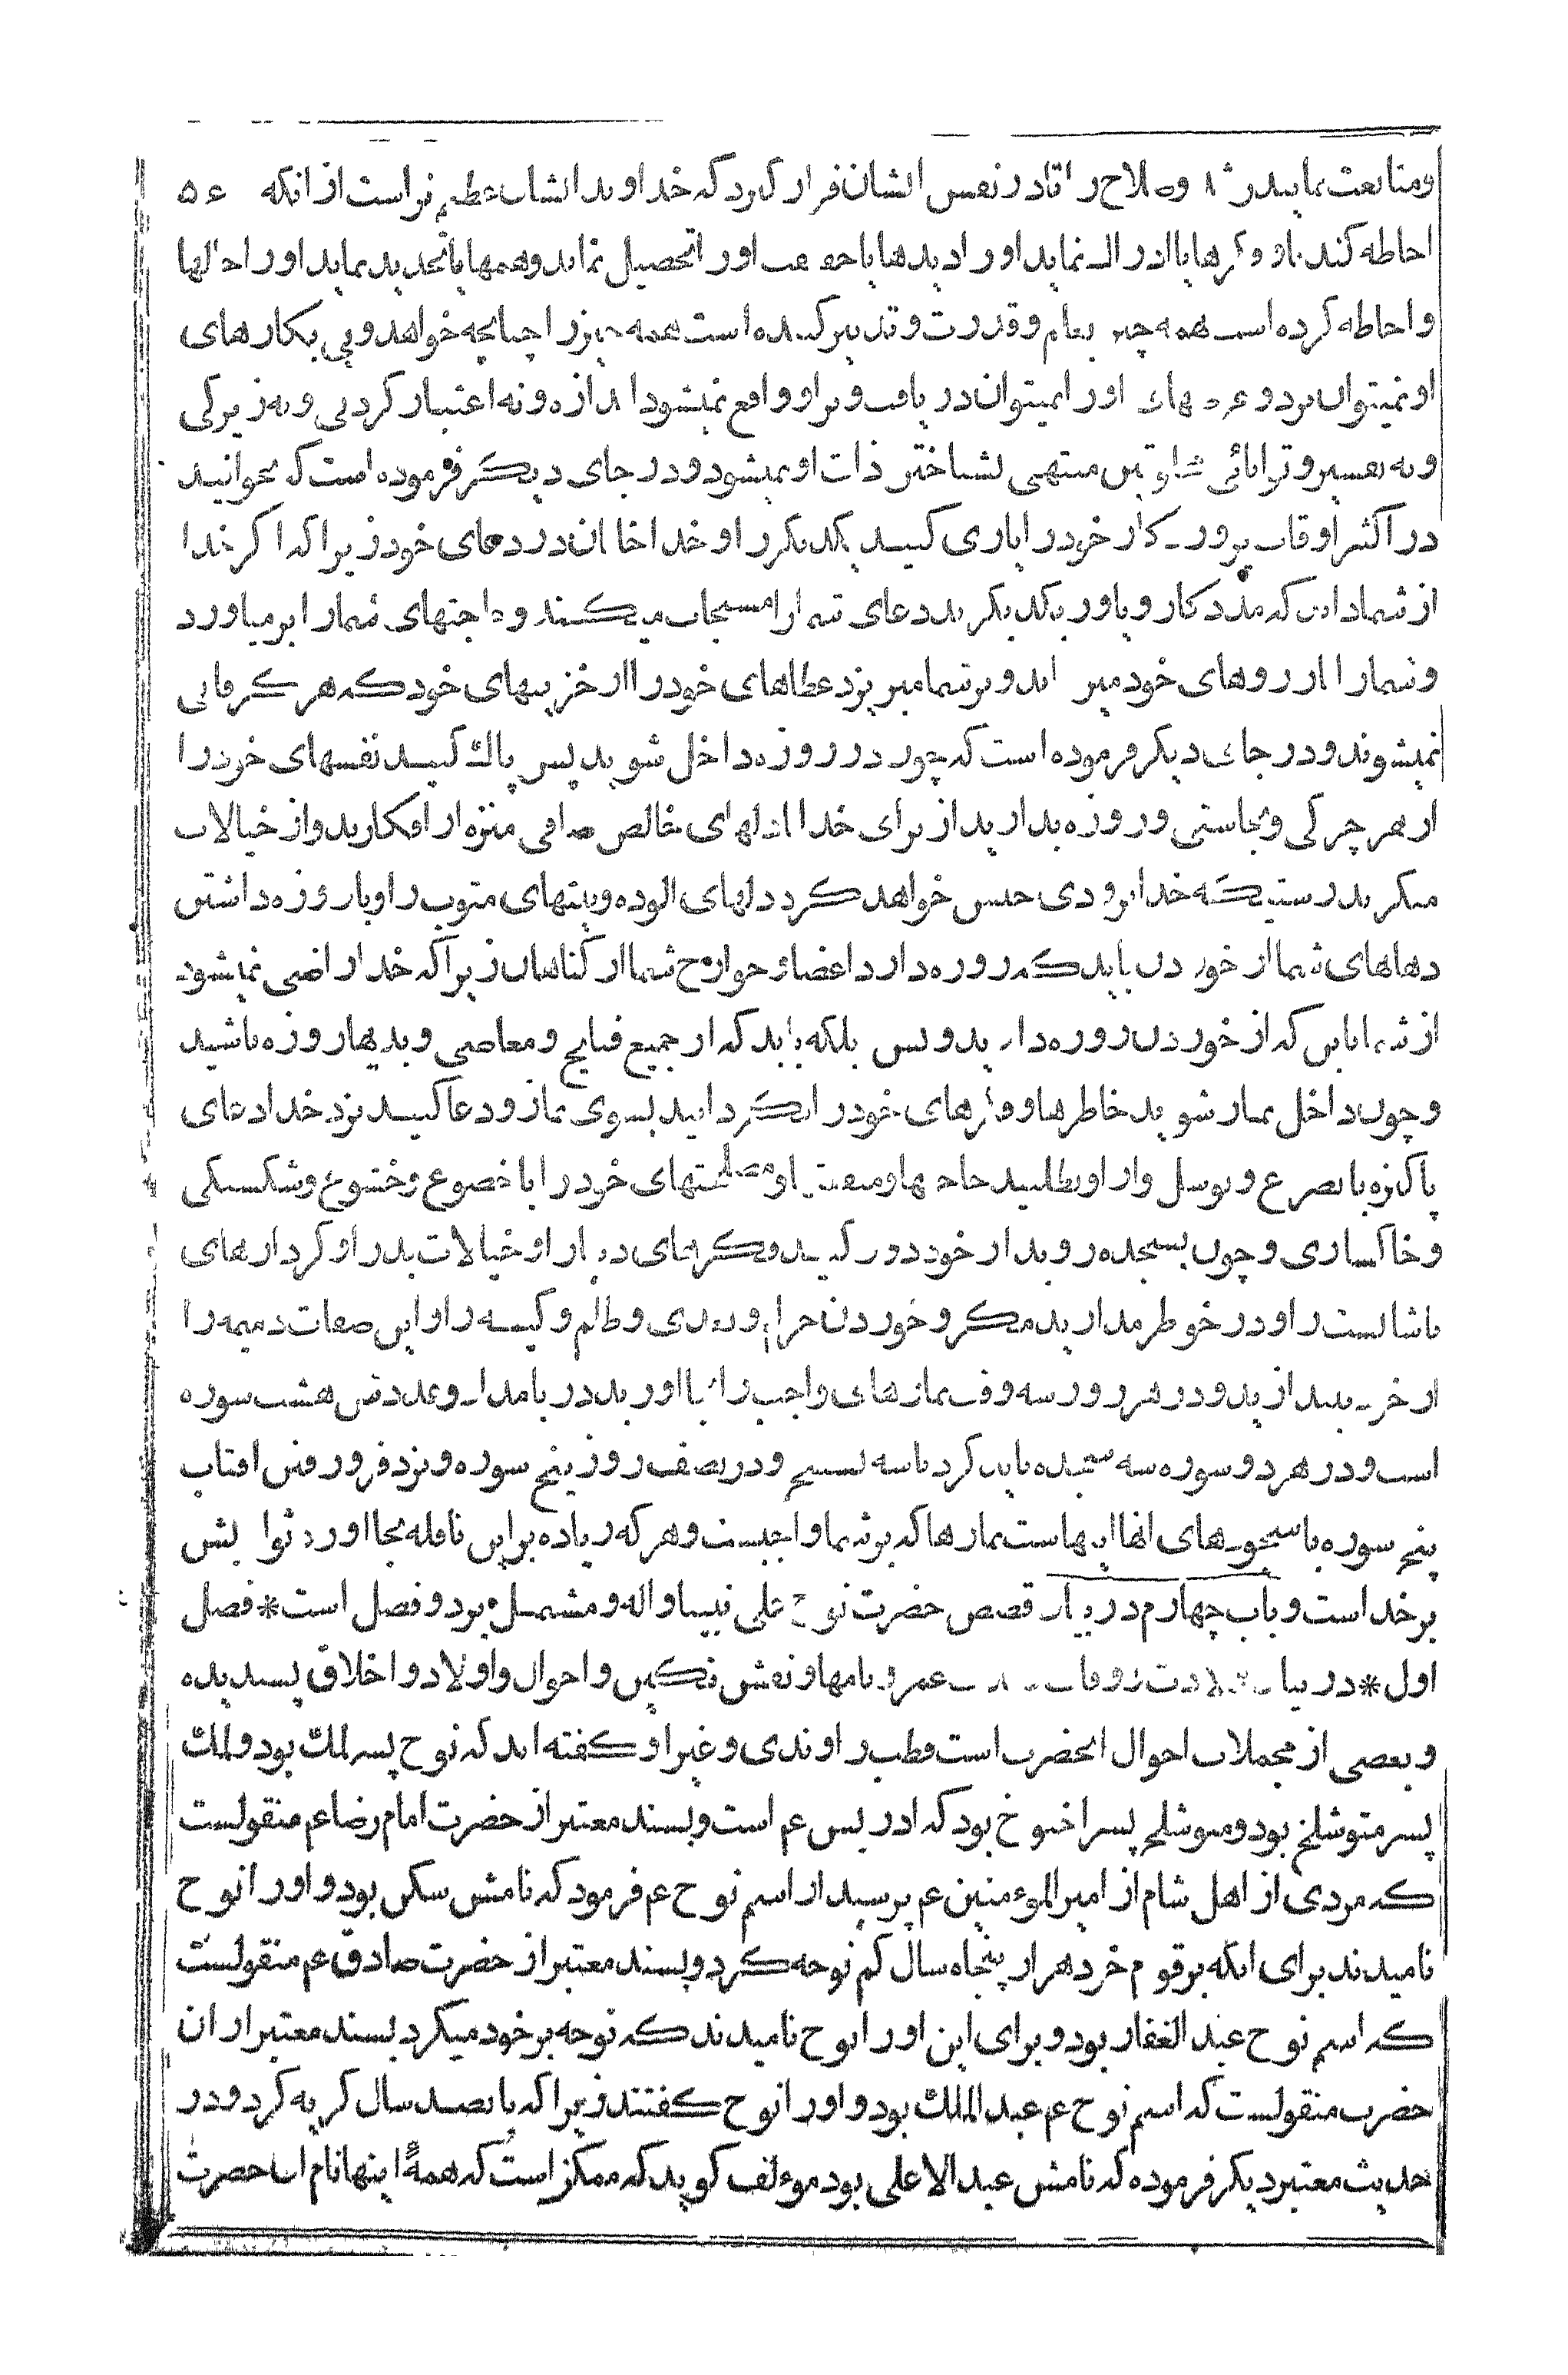 ومتابعت نمایید و صلاح را تا در نفس ایشان قرار گیرد که خداوند ایشان عظیم تر است از انکه ۵۶
احاطه کند باو فکرها یا ادراک نماید او را دیدها یا تحصیل نماید وهمها یا تحدید نماید او را حالها
و احاطه کرده است همه چیز بعلم و قدرت و تدبیر کننده است همه چیز را چنانچه خواهد و پی بکارهای
او نمیتوان برد و او را نمیتوان دریافت و بر او واقع نمیشود اندازه و نه اعتبار کردنی و نه زیرکی
و نه تفسیر و توانائی منتهی بشناختن ذات او نمیشود و در جای دیکر فرموده است که بخوانید
در اکثر اوقات پروردکار خود را یاری کنید یکدیکر را و خدا خوانان در دعای خود زیرا که اکر خدا
از شما داند که مددکار و یاور یکدیکرید دعای شما را مستجاب میکند و حاجتهای شما را برمیاورد
و شما را بارزوهای خود میرساند و بر شما میریزد عطاهای خود را از خزینهای خود که هرکز فانی
نمیشوند و در جای دیکر فرموده است که چون در روزه داخل شوید پس پاك کنید نفسهای خود را
از هر چرکی و نجاستی و روزه بدارید از برای خدا با دلهای خالص صافی منزه از افکار بد و از خیالات
منکر بدرستیکه خدا بزودی حبس خواهد کرد دلهای الوده و نیتهای را و با روزه داشتن
دهانهای شما از خوردن باید که روزه دارد اعضا و جوارح شما از کناهان زیرا که خدا راضی نمیشود
از شما باین که از خوردن روزه دارید و بس بلکه باید که از جمیع قبایح و معاصی و بدیها روزه باشید
و چون داخل نماز شوید خاطرها و فکرهای خود را بکردانید بسوی نماز و دعا کنید نزد خدا دعای
پاکیزه با تضرع و توسل و از او بطلبید حاجتها و منفعتها و مصلحتهای خود را با خضوع و خشوع و شکستکی
و خاکساری و چون بسجده روید از خود دور کنید فکرهای دنیا را و خیالات بد را و کردارهای
ناشایست را و در خاطر مدارید مکر و خوردن حرام و تعدی و ظلم و کینه را و این صفات ذمیمه را
از خود بیندازید و در هر روز سه وقت نمازهای واجب را بجا اورید در بامداد و عددش هشت سوره
است و در هر دو سوره سه سجده باید کرد با سه تسبیح و در نصف روز پنج سوره و نزد فرو رفتن افتاب
پنج سوره با سجودهای انها اینهاست نمازها که بر شما واجبست و هر که زیاده بر این نافله بجا اورد ثوابش
بر خداست و باب چهارم در بیان قصص حضرت نوح علی نبینا و اله و مشتمل بر دو فصل است * فصل
اول * در بیان ولادت و وفات و عمر و نامها و نقش نکین و احوال و اولاد و اخلاق پسندیده
و بعضی از مجملات احوال انحضرت است قطب راوندی و غیر او کفته اند که نوح پسر لمك بود و لمك
پسر متوشلخ بود و متوشلخ پسر اخنوخ بود که ادریس عم است و بسند معتبر از حضرت امام رضا عم منقولست
که مردی از اهل شام از امیر الموءمنین عم پرسید از اسم نوح عم فرمود که نامش سکن بود و او را نوح
نامیدند برای انکه بر قوم خود هزار پنجاه سال کم نوحه کرد و بسند معتبر از حضرت صادق عم منقولست
که اسم نوح عبد الغفار بود و برای این او را نوح نامیدند که نوحه بر خود میکرد بسند معتبر از ان
حضرت منقولست که اسم نوح عم عبد الملك بود و او را نوح کفتند زیرا که پانصد سال کریه کرد و در
حدیث معتبر دیکر فرموده که نامش عبد الاعلی بود موءلف کوید که ممکن است که همهٔ اینها نام ان حضرت